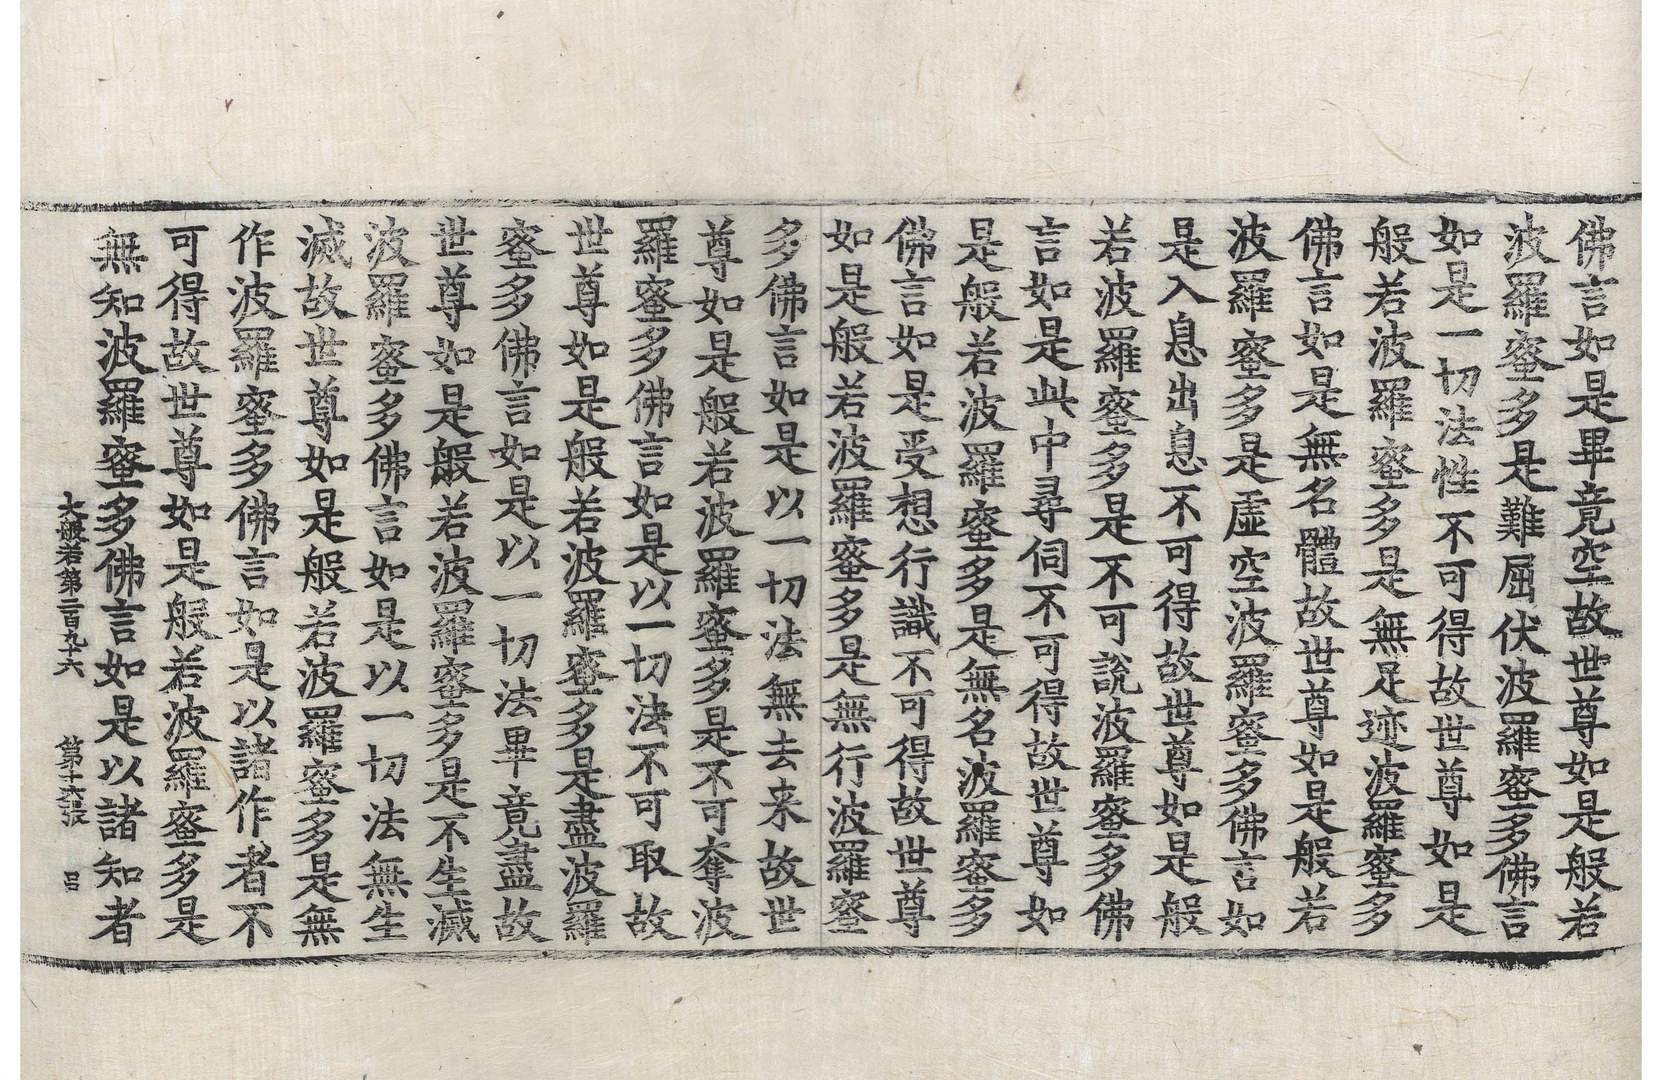 佛言如是畢竟空故世尊如是般若
波羅蜜多是難屈伏波羅蜜多佛言
如是一切法性不可得故世尊如是
般若波羅蜜多是無足迹波羅蜜多
佛言如是無名體故世尊如是般若
波羅蜜多是虛空波羅蜜多佛言如
是入息出息不可得故世尊如是般
若波羅蜜多是不可說波羅蜜多佛
言如是此中尋伺不可得故世尊如
是般若波羅蜜多是無名波羅蜜多
佛言如是受想行識不可得故世尊
如是般若波羅蜜多是無行波羅蜜
多佛言如是以一切法無去来故世
尊如是般若波羅蜜多是不可奪波
羅蜜多佛言如是以一切法不可取故
世尊如是般若波羅蜜多是盡波羅
蜜多佛言如是以一切法畢竟盡故
世尊如是般若波羅蜜多是不生滅
波羅蜜多佛言如是以一切法無生
滅故世尊如是般若波羅蜜多是無
作波羅蜜多佛言如是以諸作者不
可得故世尊如是般若波羅蜜多是
無知波羅蜜多佛言如是以諸知者
大般若第二百九十六 第十六張 呂